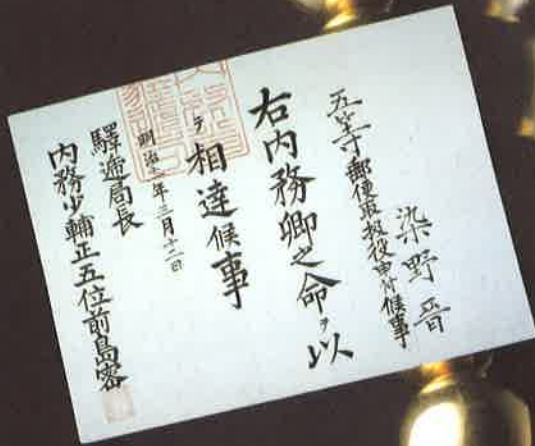 染野晋
五等郵便取扱役申付候事
右内務卿之命ヲ以
テ相達候事
年三月十二日
驛逓局長
内務少輔正五位前島密